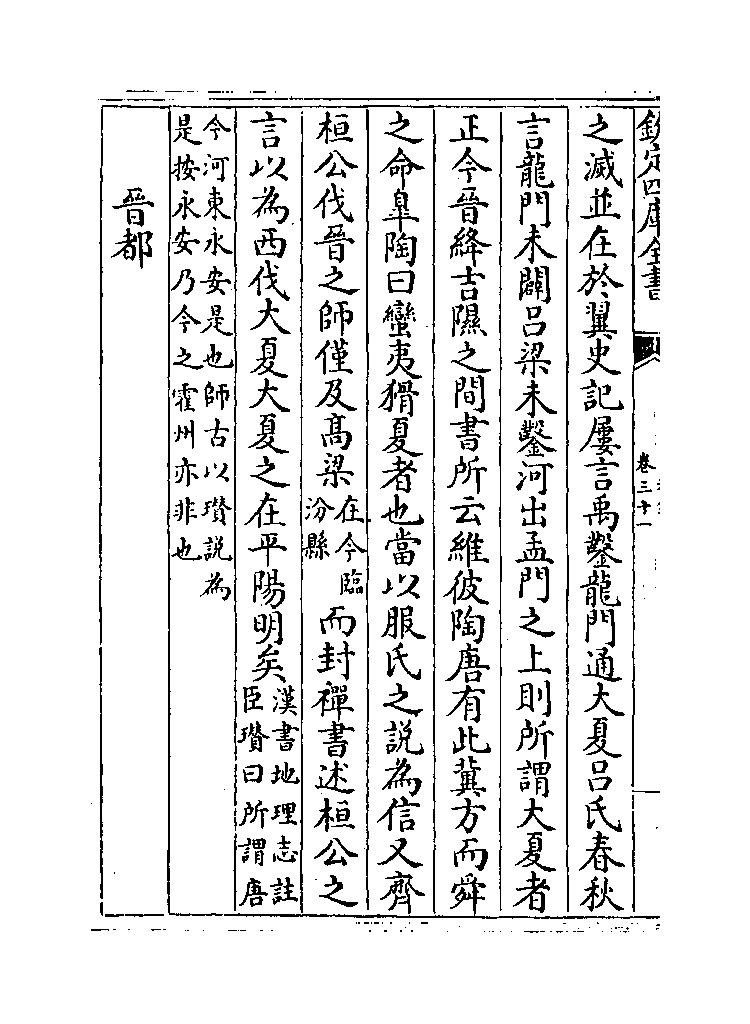 欽定四庫全書
卷三十一
之滅並在於翼史記屢言禹鑿龍門通大夏呂氏春秋
言龍門未闢呂梁未鑿河出孟門之上則所謂大夏者
正今晉絳吉隰之間書所云維彼陶唐有此冀方而舜
之命臯陶曰蠻夷猾夏者也當以服氏之說為信又齊
桓公伐晉之師僅及髙梁
在今臨
汾縣
而封禪書述桓公之
言以為西伐大夏大夏之在平陽明矣
漢書地理志註
臣瓚曰所謂唐
今河東永安是也師古以瓚說為
是按永安乃今之霍州亦非也
晉都